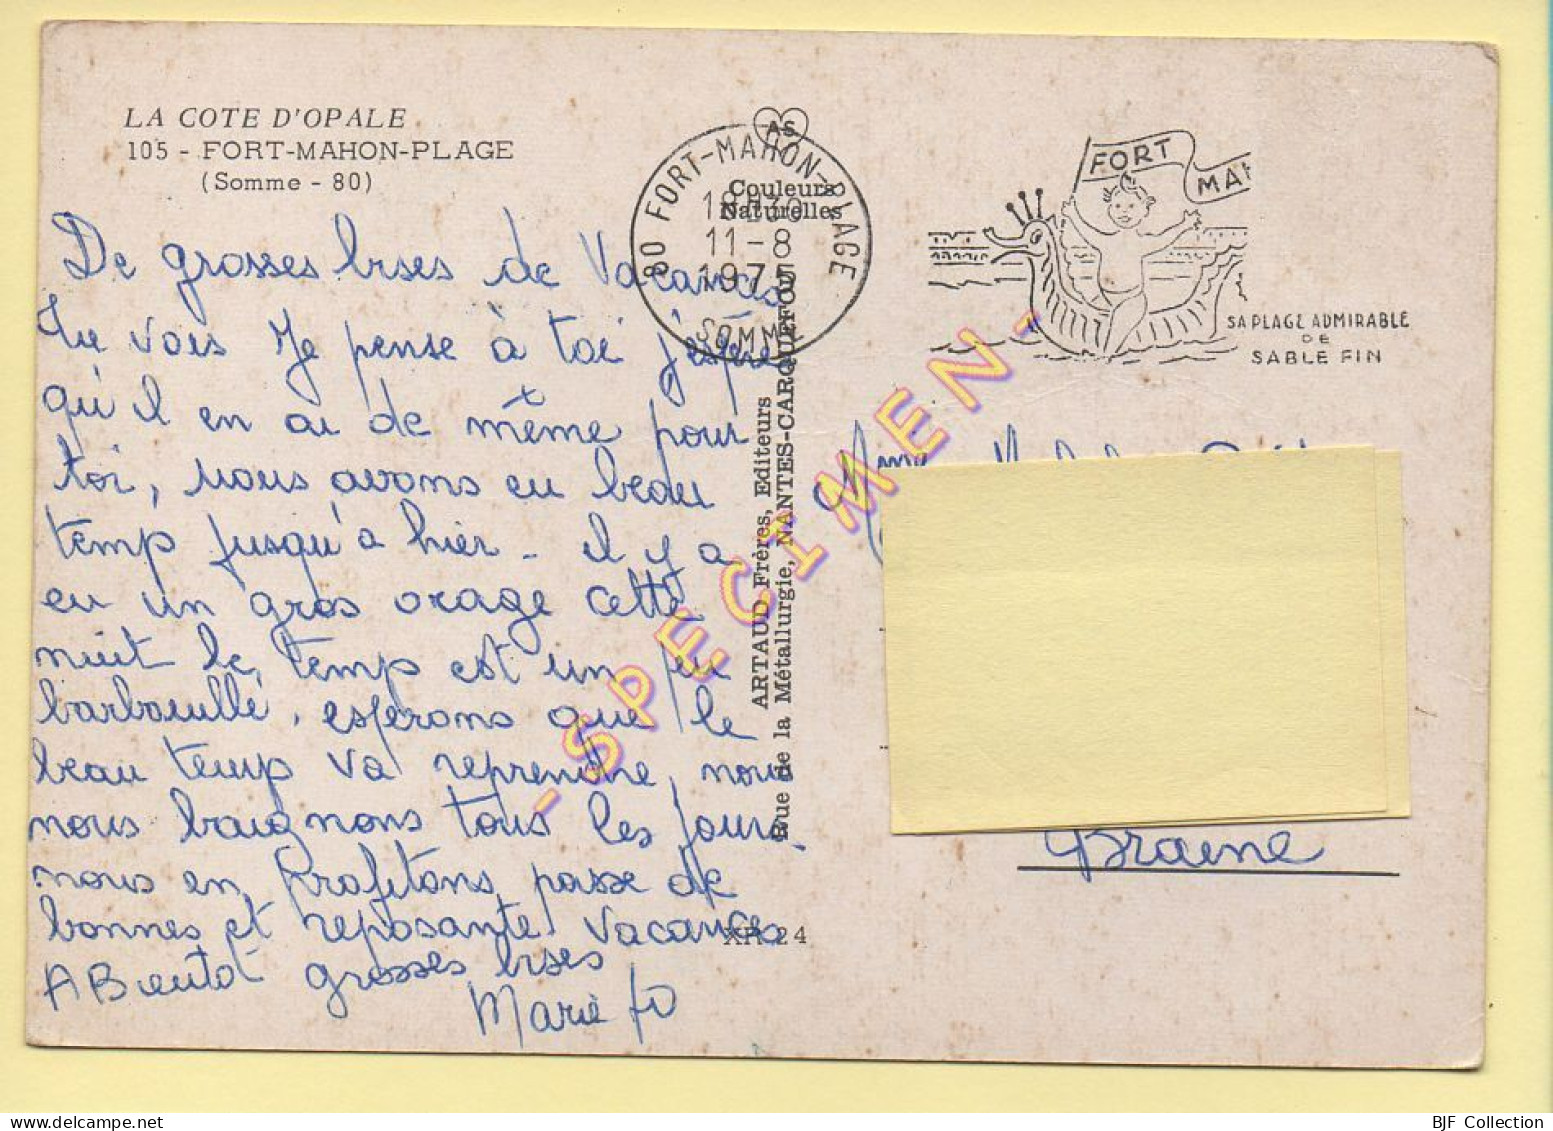 LA COTE D'OPALE
105 - FORT-MAHON-PLAGE
(Somme - 80)
De grosses bises de Vacances
Tu vois Je pense à toi j'éspère
qu'il en ai de même pour
toi, nous avons eu beau
temp jusqu'a hier - il y a
eu un gros orage cette
nuit le temp est un peu
barbouillé, esperons que le
beau temp va reprendre, nous
nous baignons tous les jours.
nous en profitons passe de
bonnes et reposante vacances
A Bientot grosses bises
Marie Jo
AS
Couleurs
Naturelles
80 FORT-MAHON-PLAGE
18H30
11-8
1975
SOMME
ARTAUD Frères, Editeurs
Rue de la Métallurgie, NANTES-CARQUEFOU
XR 24
FORT MAH
SA PLAGE ADMIRABLE
DE
SABLE FIN
- SPECIMEN -
Mme
Braine
BJF Collection